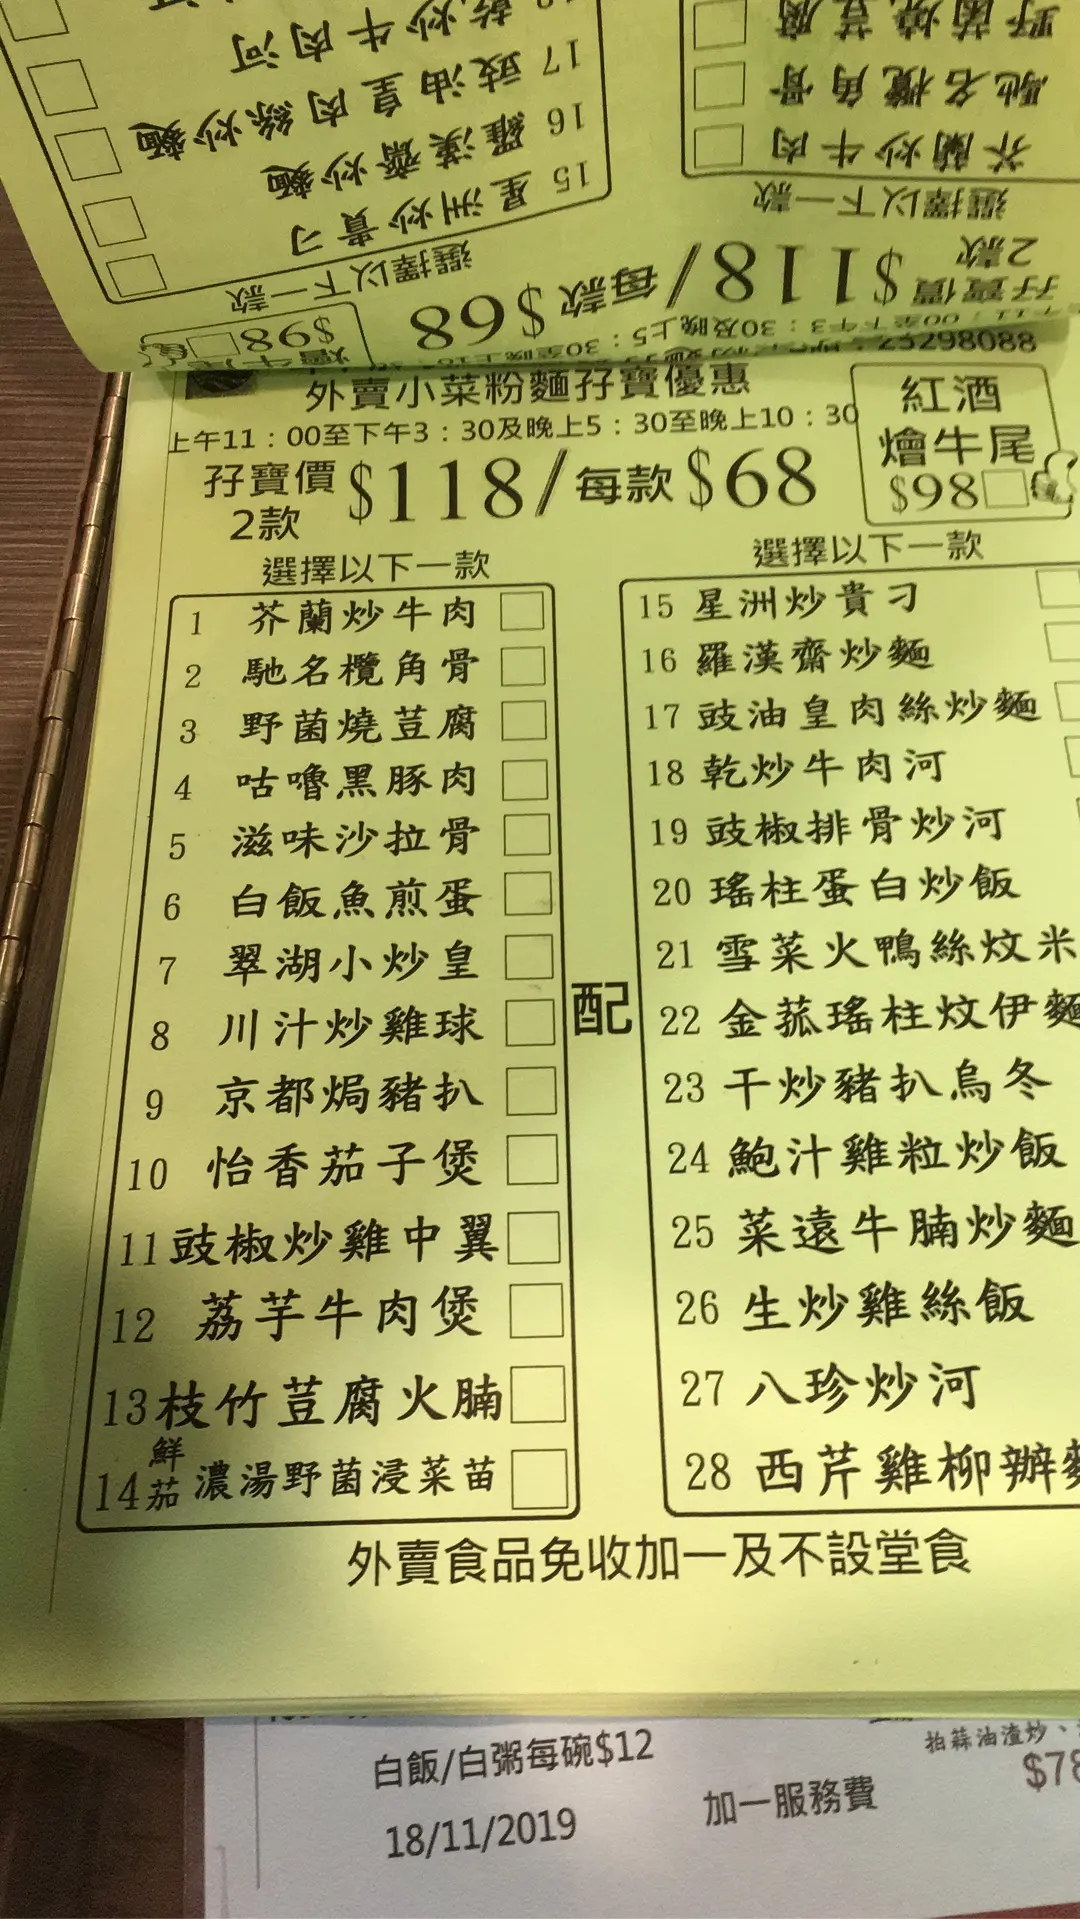 乾炒牛肉河
17 豉油皇肉絲炒麵
16 羅漢齋炒麵
15 星洲炒貴刁
選擇以下一款
芥蘭炒牛肉
馳名欖角骨
野菌燒荳腐
選擇以下一款
孖寶價
2款
$118/每款$68
$98
25298088
外賣小菜粉麵孖寶優惠
上午11：00至下午3：30及晚上5：30至晚上10：30
孖寶價
2款
$118/每款$68
紅酒
燴牛尾
$98
選擇以下一款
1 芥蘭炒牛肉
2 馳名欖角骨
3 野菌燒荳腐
4 咕嚕黑豚肉
5 滋味沙拉骨
6 白飯魚煎蛋
7 翠湖小炒皇
8 川汁炒雞球
9 京都焗豬扒
10 怡香茄子煲
11 豉椒炒雞中翼
12 荔芋牛肉煲
13 枝竹荳腐火腩
14 鮮茄濃湯野菌浸菜苗
配
選擇以下一款
15 星洲炒貴刁
16 羅漢齋炒麵
17 豉油皇肉絲炒麵
18 乾炒牛肉河
19 豉椒排骨炒河
20 瑤柱蛋白炒飯
21 雪菜火鴨絲炆米
22 金菰瑤柱炆伊麵
23 干炒豬扒烏冬
24 鮑汁雞粒炒飯
25 菜遠牛腩炒麵
26 生炒雞絲飯
27 八珍炒河
28 西芹雞柳辦麵
外賣食品免收加一及不設堂食
白飯/白粥每碗$12
18/11/2019
加一服務費
拍蒜油渣炒、
$78